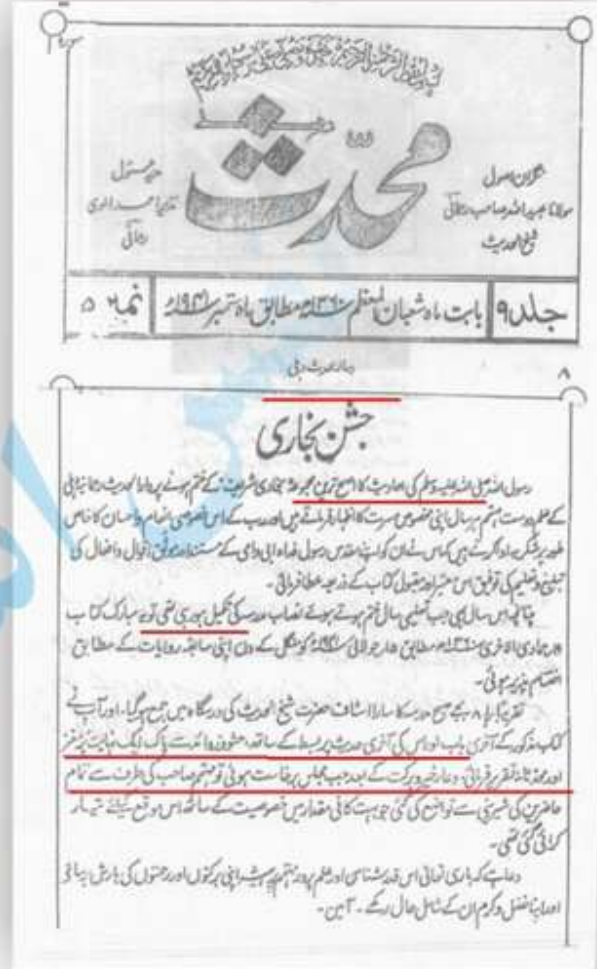 محدث
نگران اصول
مولانا عبید اللہ صاحب رحمانی
شیخ الحدیث
مدیر مسئول
نذیر احمد املوی
رحمانی
جلد ۹ بابت ماہ شعبان المعظم ۱۳۶۰ھ مطابق ماہ ستمبر ۱۹۴۱ء نمبر ۵
رسالہ محدث دہلی
۸
جشن بخاری
رسول اللہ صلی اللہ علیہ وسلم کی احادیث کا اصح ترین مجموعہ بخاری شریف کے ختم ہونے پر دارالحدیث رحمانیہ دہلی
کے علم دوست مہتمم ہر سال اپنی مخصوص مسرت کا اظہار فرماتے ہیں اور رب کے اس خصوصی انعام واحسان کا خاص
طور پر شکریہ ادا کرتے ہیں کہ اس نے ان کو اپنے مقدس رسول فداہ ابی وامی کے مستند اور موثق اقوال وافعال کی
تبلیغ وتعلیم کی توفیق اس معتبر اور مقبول کتاب کے ذریعہ عطا فرمائی۔
چنانچہ اس سال بھی جب تعلیمی سال ختم ہوتے ہوئے نصاب مدرسہ کی تکمیل ہو رہی تھی تو یہ مبارک کتاب
جمادی الاخری ۱۳۶۰ھ مطابق ۱۵ جولائی ۱۹۴۱ء کو منگل کے دن اپنی سابقہ روایات کے مطابق
اختتام پذیر ہوئی۔
تقریباً ۸ بجے صبح مدرسہ کا سارا اسٹاف حضرت شیخ الحدیث کی درسگاہ میں جمع ہو گیا۔ اور آپ نے
کتاب مذکور کے آخری باب اور اس کی آخری حدیث پر بسط کے ساتھ، حشو وزوائد سے پاک ایک نہایت پرمغز
اور محدثانہ تقریر فرمائی، دعاء خیر وبرکت کے بعد جب مجلس برخاست ہوئی تو مہتمم صاحب کی طرف سے تمام
حاضرین کی شیرینی سے تواضع کی گئی جو بہت کافی مقدار میں خصوصیت کے ساتھ اس موقع کیلئے تیار
کرائی گئی تھی۔
دعا ہے کہ باری تعالیٰ اس قدر شناس اور علم پرور مہتمم پر ہمیشہ اپنی برکتوں اور رحمتوں کی بارش برسائے
اور اپنا فضل وکرم ان کے شامل حال رکھے۔ آمین۔